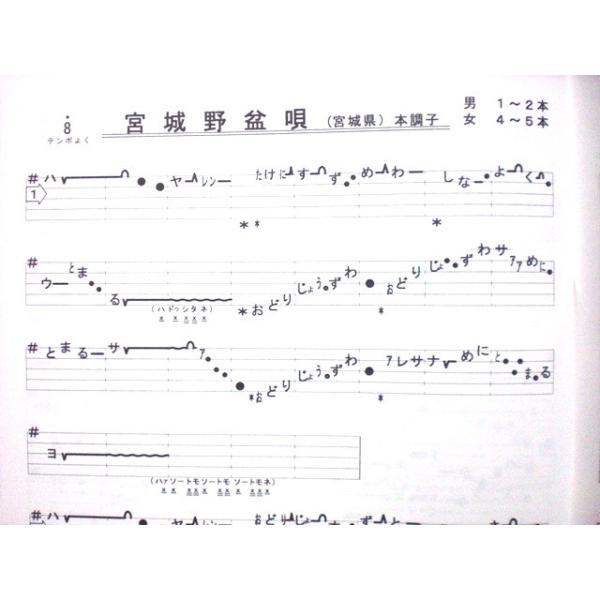 8 テンポよく
宮城野盆唄 (宮城県) 本調子
男 1〜2本
女 4〜5本
1
ハ ヤーレンー たけにすーずーめーわー しなー よーくー
ウーとまる (ハドッシタネ) おどりじょうずわ おどりじょずわサァァめに
とまるーサ ァ おどりじょうずわ ァレサナーめにとまる
ヨ (ハァソートモソートモソートモネ)
ハ ヤーレンー おどり